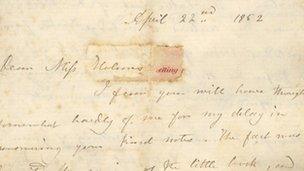 April 22nd 1862
Dear Miss Holmes
etting
I fear you will have thought
somewhat hardly of me for my delay in
answering your kind note. The fact was
of the little book, and